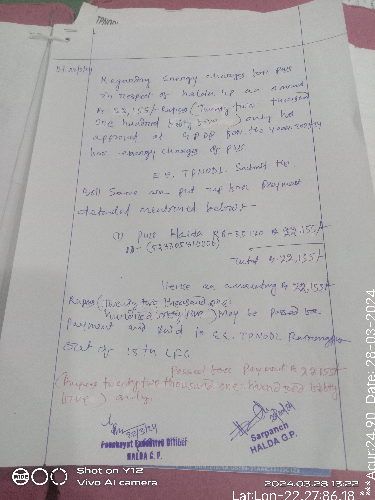 Regarding Energy charges for PWS
in respect of Halda GP an amount
Rs 22,155/- Rupees (Twenty two thousand
one hundred fifty five) only has
approved at GPDP for the year 2023-24
for energy charges of PWS
E.E. TPNODL Submit the
Bill Same are put up for Payment
detailed mentioned below:-
(1) PWS Halda
22,155/-
Total Rs 22,155/-
Hence an amounting Rs 22,155/-
Rupees (Twenty two thousand one
hundred fifty five) May be passed for
Payment and Paid in E.E. TPNODL
out of 15th CFC
Passed for Payment Rs 22155/-
(Rupees twenty two thousand one hundred fifty
five) only.
Panchayat Executive Officer
HALDA G.P.
Sarpanch
HALDA G.P.
Shot on Y12
Vivo AI camera
2024.03.28 13:22
Lat:Lon-22.27:86.18
***Acur:24.90 Date:28-03-2024